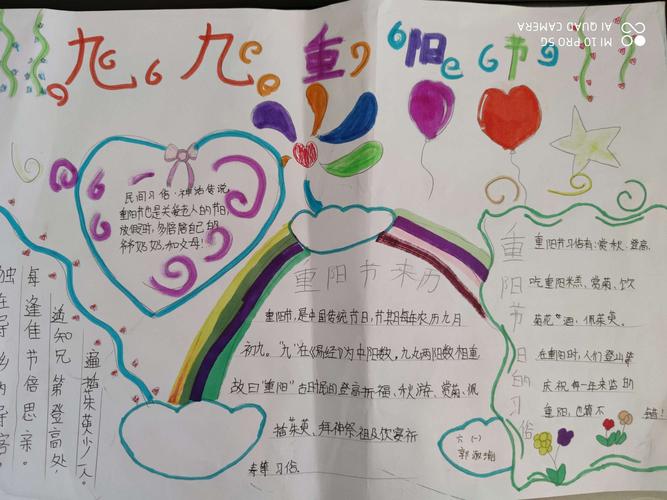 九九重阳节
MI 10 PRO 5G
AI QUAD CAMERA
民间习俗·神话传说
重阳节也是关爱老人的节日,
放假时,多陪陪自己的
爷爷奶奶,和父母!
独在异乡为异客,
每逢佳节倍思亲。
遥知兄弟登高处,
遍插朱英少一人。
重阳节来历
重阳节,是中国传统节日,节期每年农历九月
初九。"九"在《易经》为中阳数,九九两阳数相重
故曰"重阳"古时民间的登高祈福、秋游、赏菊、佩
插茱萸、拜神祭祖及饮宴祈
寿等习俗.
六(一)
重阳节日的习俗
重阳节习俗有:赏秋、登高、
吃重阳米糕、赏菊、饮
菊花酒,佩茱萸。
在重阳时,人们登山
庆祝每一年来临的
重阳,也算不错!